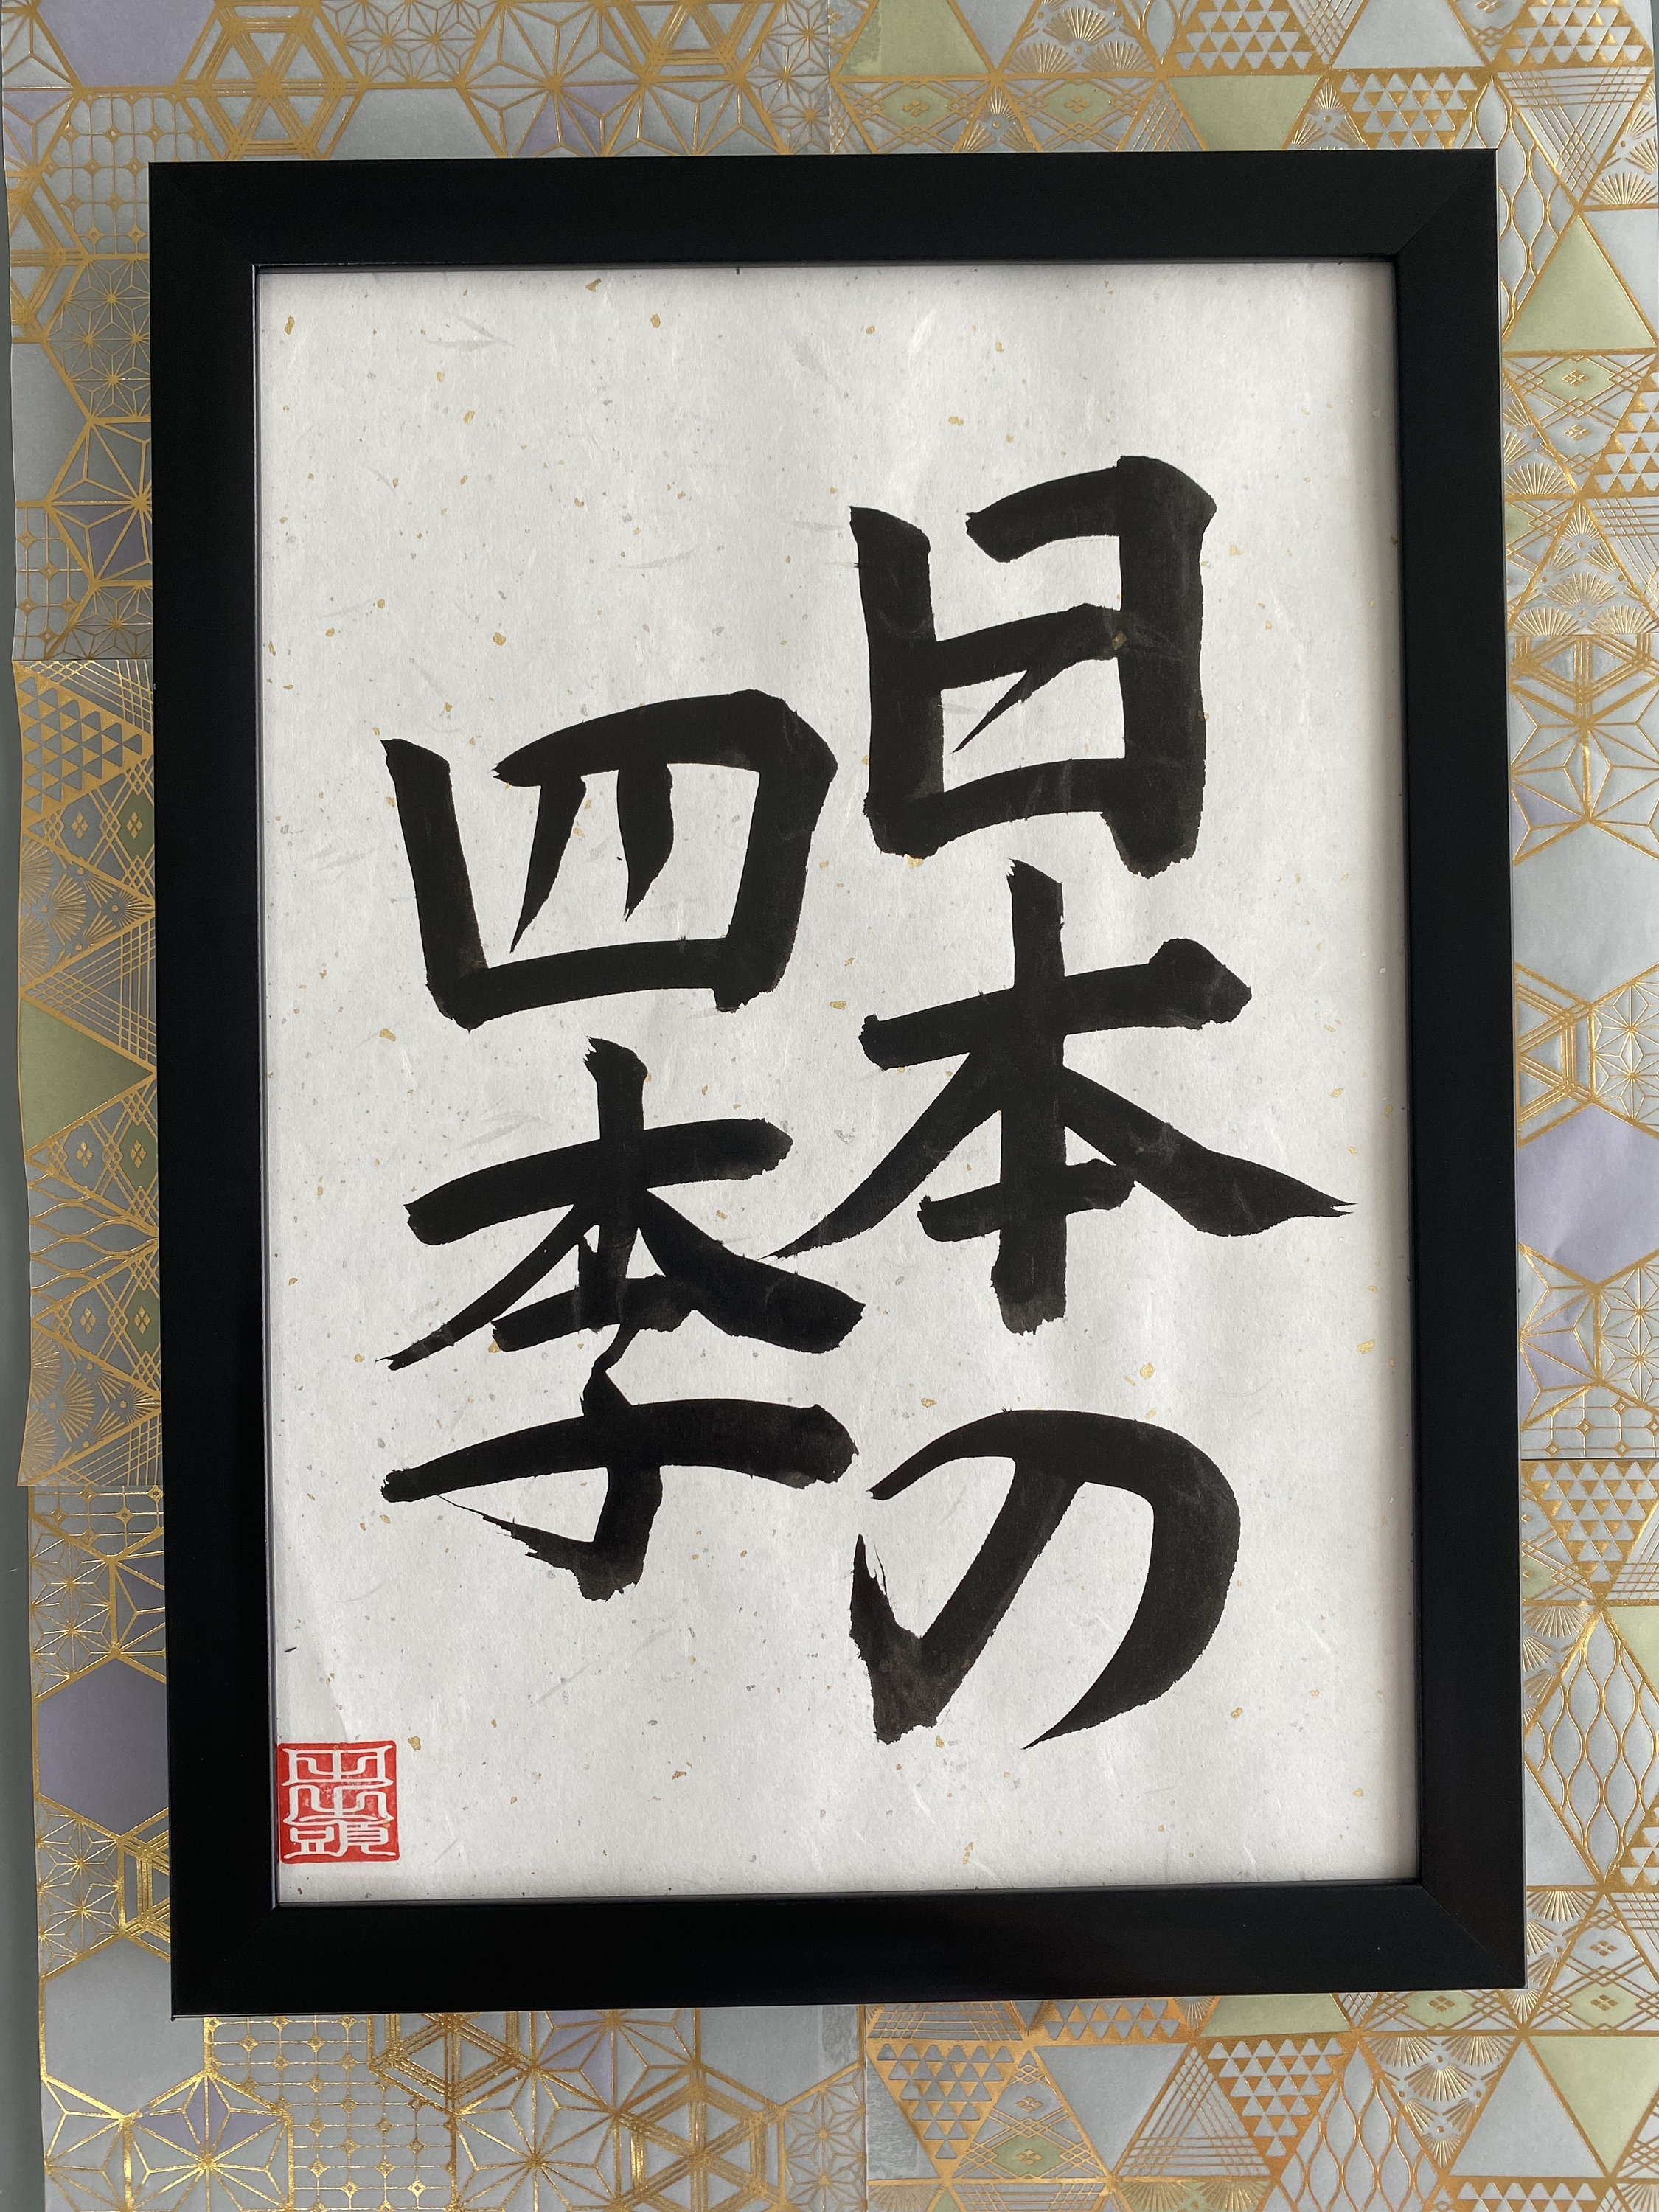 日本の
四季